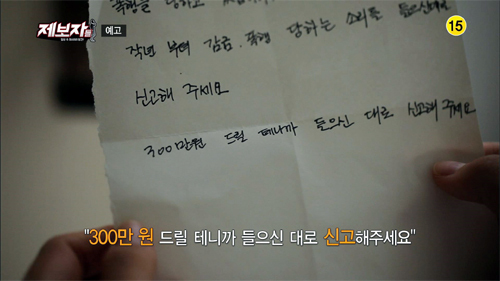 제보자들
예고
15
폭행을 당하고
작년 부터 감금.폭행 당하는 소리를 들으신대로
신고해 주세요
300만원 드릴 테니까 들으신 대로 신고해 주세요
"300만 원 드릴 테니까 들으신 대로 신고해주세요"